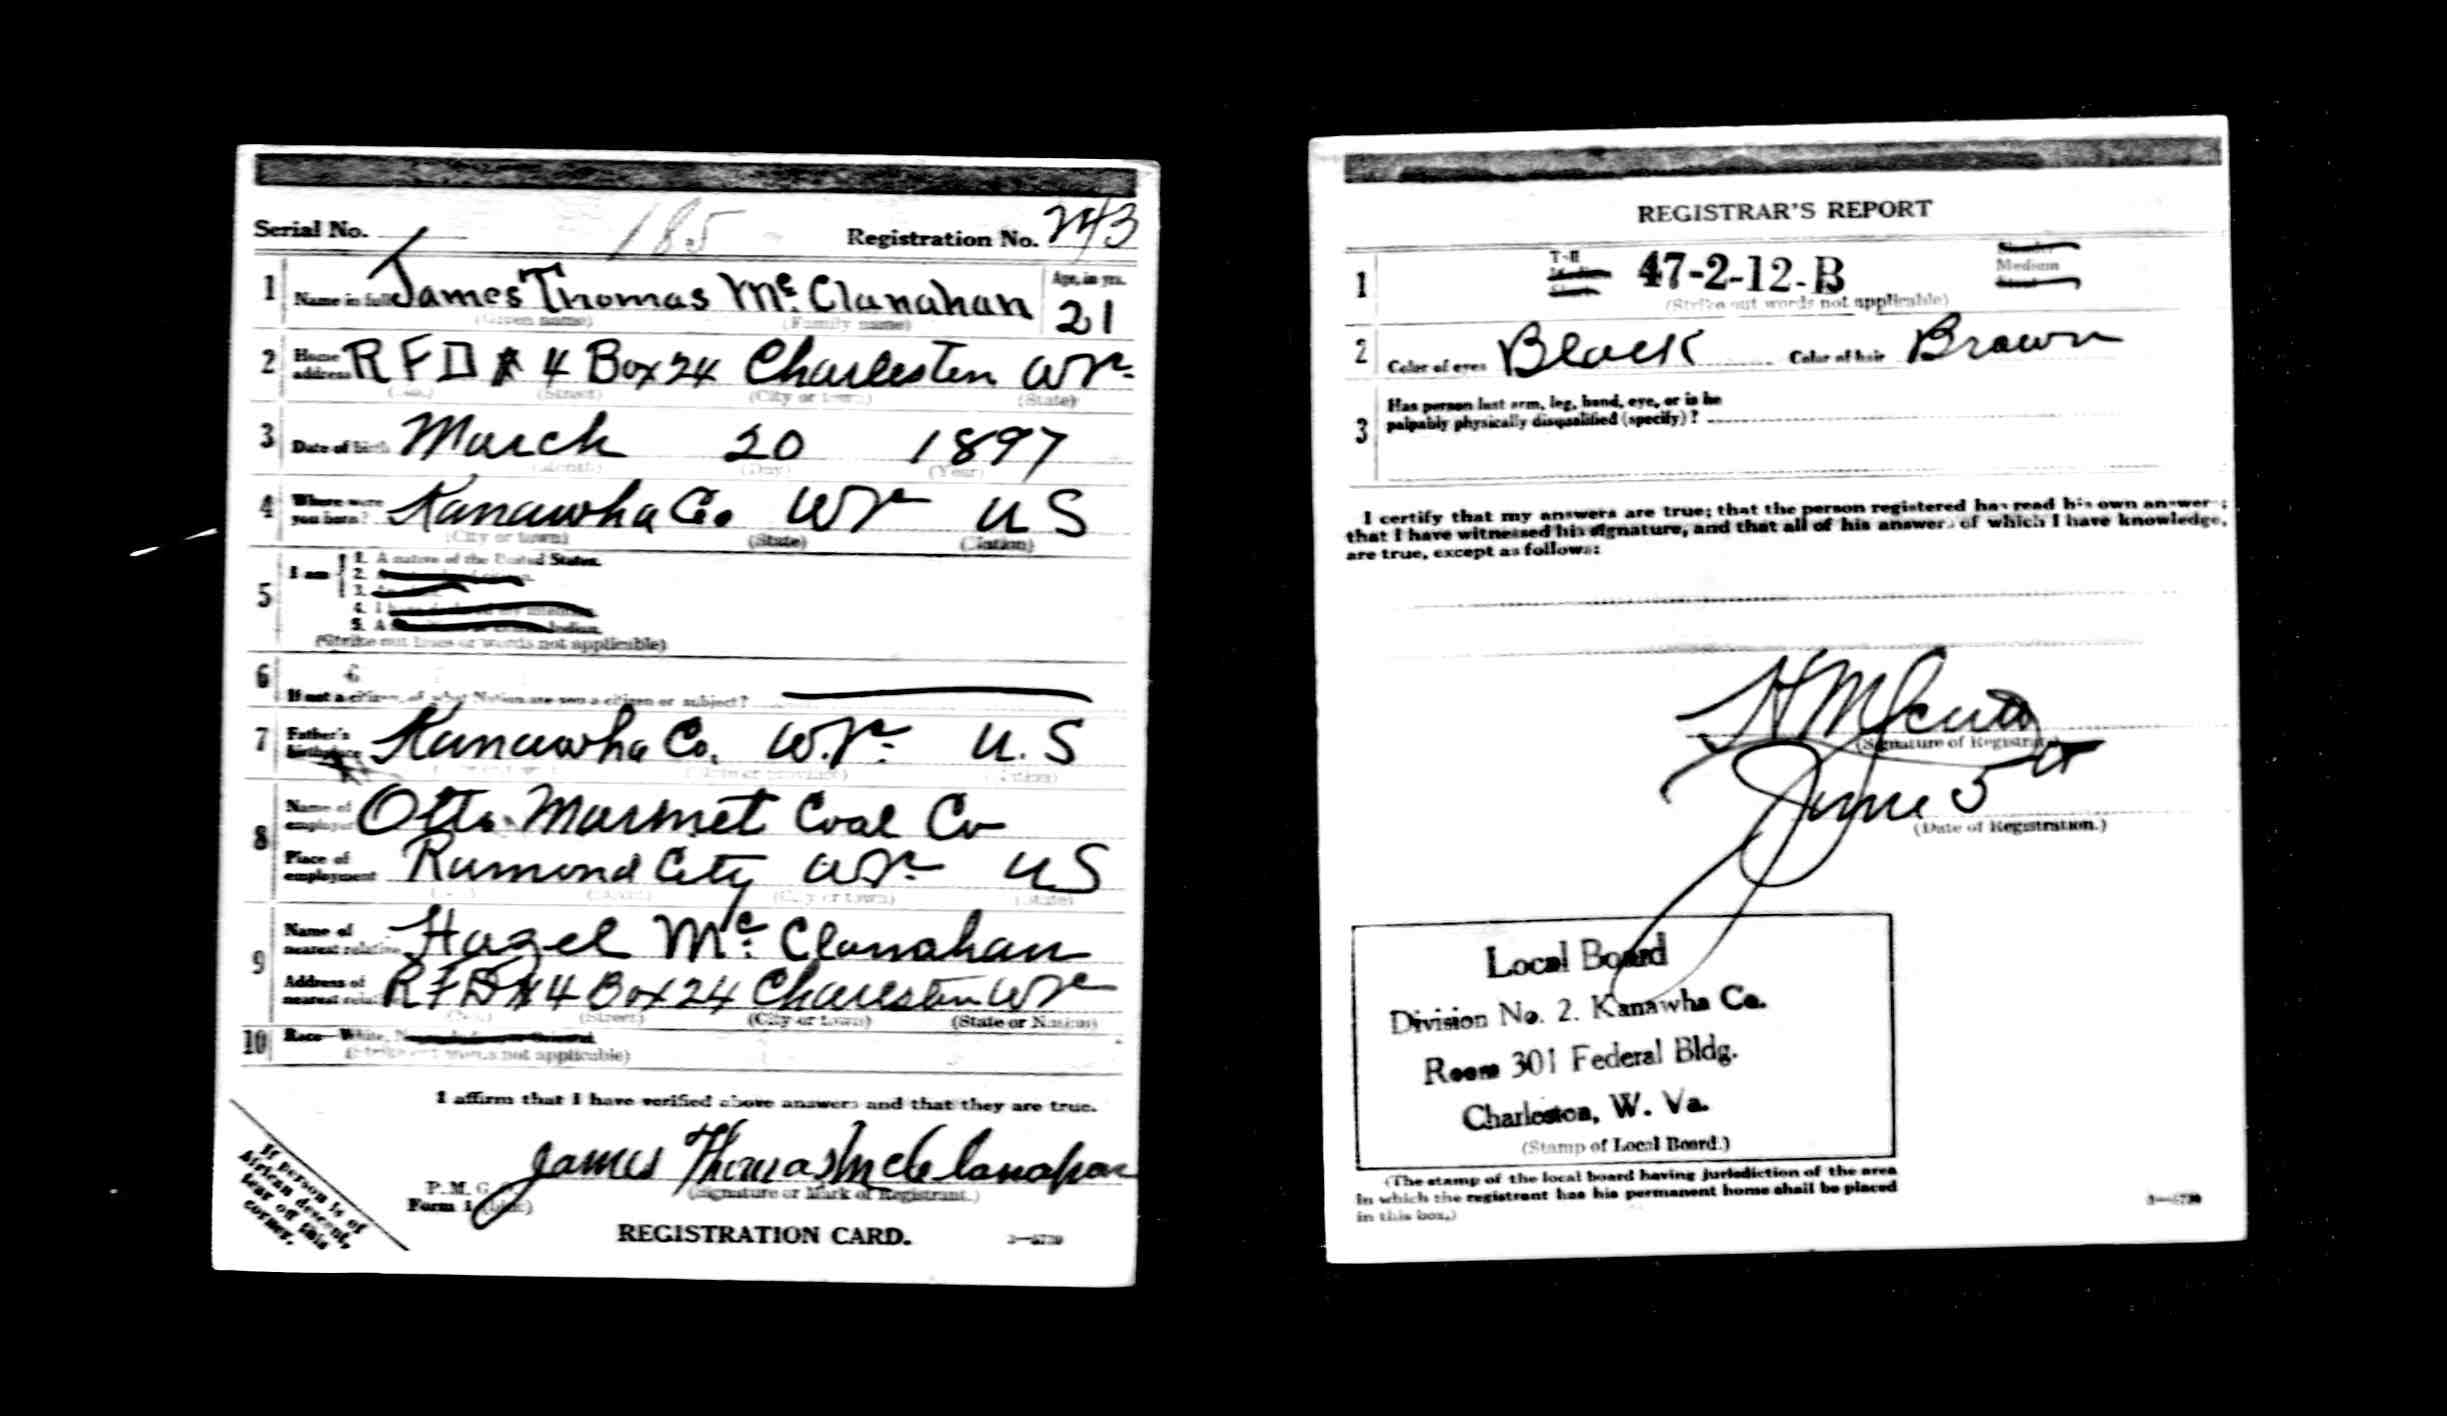 Serial No. 185 Registration No. 243
1 Name in full James Thomas Mc. Clanahan Age, in yrs. 21
(Given name) (Family name)
2 Home address R F D # 4 Box 24 Charleston W Va
(No.) (Street) (City or town) (State)
3 Date of birth March 20 1897
(Month) (Day) (Year)
4 Where were you born? Kanawha Co. W Va U S
(City or town) (State) (Nation)
5 I am 1. A native of the United States.
2.
3.
4. I
5. A
(Strike out lines or words not applicable)
6 If not a citizen, of what Nation are you a citizen or subject?
7 Father's birthplace Kanawha Co. W. Va. U. S
8 Name of employer Otto Marmet Coal Co
Place of employment Raymond City W Va U S
9 Name of nearest relative Hazel Mc. Clanahan
Address of nearest relative R F D # 4 Box 24 Charleston W Va
(No.) (Street) (City or town) (State or Nation)
10 Race—White,
(Strike out words not applicable)
I affirm that I have verified above answers and that they are true.
James Thomas McClanahan
P. M. G. O.
Form 1 (blue)
(Signature or Mark of Registrant.)
REGISTRATION CARD.
If person is of
African descent,
tear off this
corner.
REGISTRAR'S REPORT
1 47-2-12-B Medium
(Strike out words not applicable)
2 Color of eyes Black Color of hair Brown
3 Has person lost arm, leg, hand, eye, or is he
palpably physically disqualified (specify)?
I certify that my answers are true; that the person registered has read his own answers;
that I have witnessed his signature, and that all of his answers of which I have knowledge,
are true, except as follows:
(Signature of Registrar)
June 5
(Date of Registration.)
Local Board
Division No. 2. Kanawha Co.
Room 301 Federal Bldg.
Charleston, W. Va.
(Stamp of Local Board.)
(The stamp of the local board having jurisdiction of the area
in which the registrant has his permanent home shall be placed
in this box.)